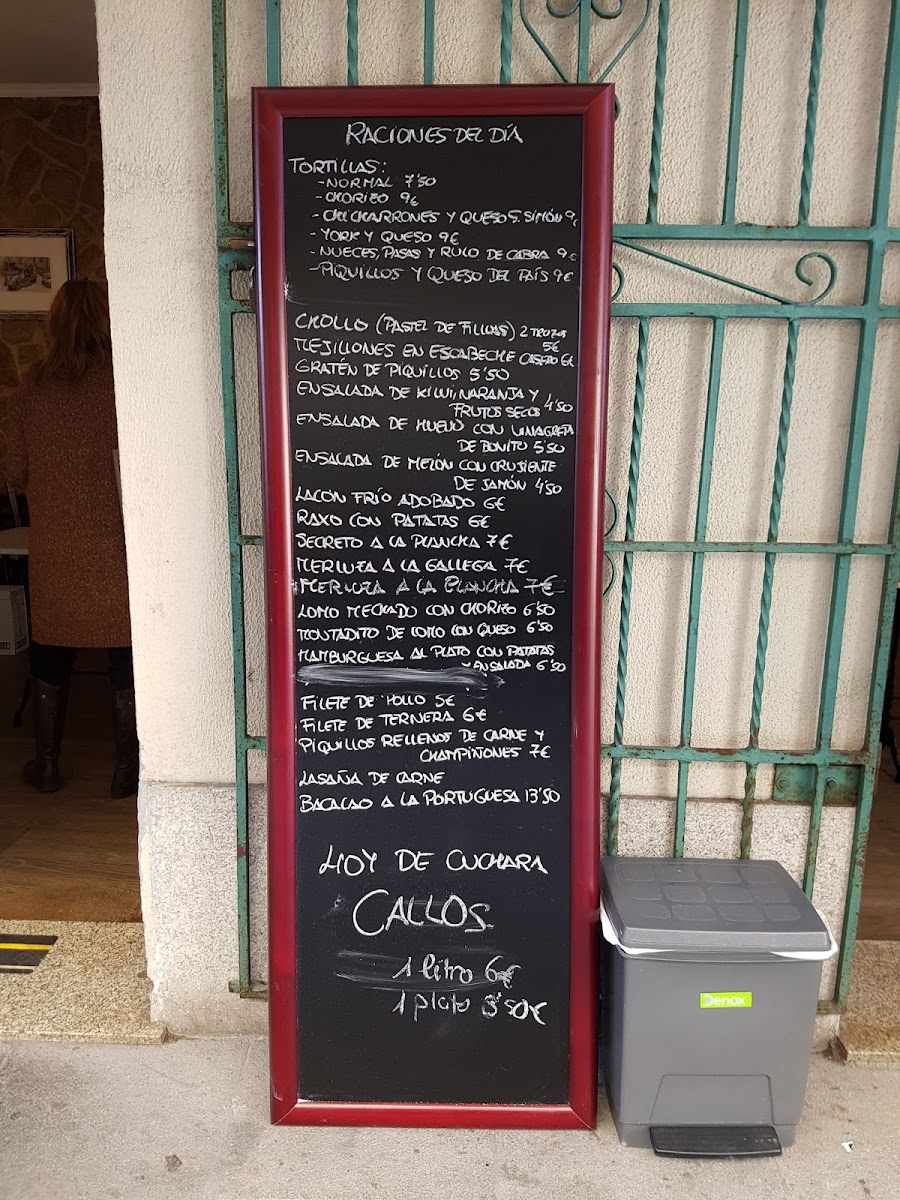 RACIONES DEL DÍA
TORTILLAS:
-NORMAL 7'50
-CHORIZO 9€
-CHICHARRONES Y QUESO S. SIMÓN 9€
-YORK Y QUESO 9€
-NUECES, PASAS Y RULO DE CABRA 9€
-PIQUILLOS Y QUESO DEL PAÍS 9€
CHOLLO (PASTEL DE FILLOAS) 2 TROZOS
5€
MEJILLONES EN ESCABECHE CASERO 6€
GRATÉN DE PIQUILLOS 5'50
ENSALADA DE KIWI, NARANJA Y
FRUTOS SECOS 4'50
ENSALADA DE HUEVO CON VINAGRETA
DE BONITO 5'50
ENSALADA DE MELÓN CON CRUJIENTE
DE JAMÓN 4'50
LACÓN FRÍO ADOBADO 6€
RAXO CON PATATAS 6€
SECRETO A LA PLANCHA 7€
MERLUZA A LA GALLEGA 7€
MERLUZA A LA PLANCHA 7€
LOMO MECHADO CON CHORIZO 6'50
MONTADITO DE LOMO CON QUESO 6'50
HAMBURGUESA AL PLATO CON PATATAS
Y ENSALADA 6'50
FILETE DE POLLO 5€
FILETE DE TERNERA 6€
PIQUILLOS RELLENOS DE CARNE Y
CHAMPIÑONES 7€
LASAÑA DE CARNE
BACALAO A LA PORTUGUESA 13'50
HOY DE CUCHARA
CALLOS
1 litro 6€
1 plato 3'50€
Denox